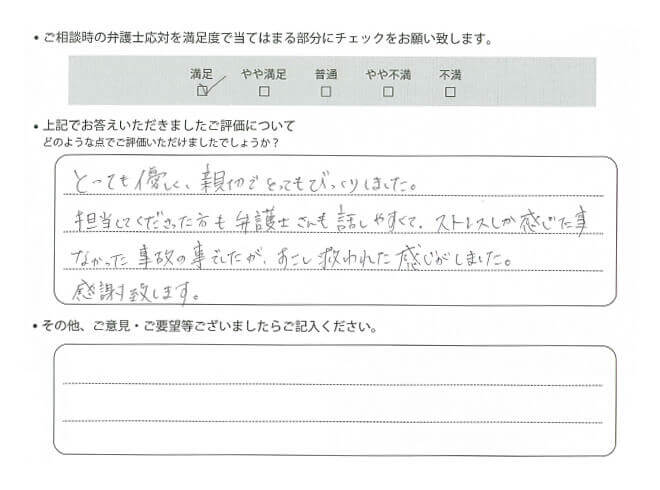 • ご相談時の弁護士応対を満足度で当てはまる部分にチェックをお願い致します。
満足 やや満足 普通 やや不満 不満
□ □ □ □ □
• 上記でお答えいただきましたご評価について
どのような点でご評価いただけましたでしょうか？
とっても優しく、親切でとってもびっくりしました。
担当してくださった方も弁護士さんも話しやすくて、ストレスしか感じた事
なかった事故の事でしたが、すこし救われた感じがしました。
感謝致します。
• その他、ご意見・ご要望等ございましたらご記入ください。